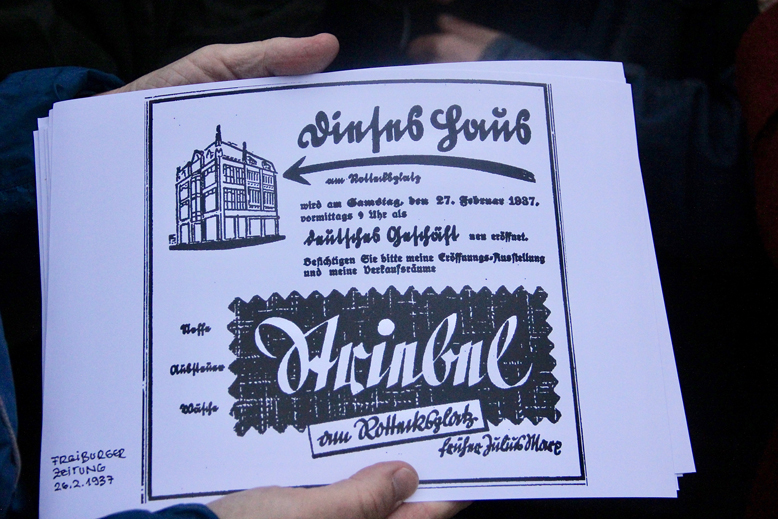 Dieses Haus
am Rotteckplatz
wird am Samstag, den 27. Februar 1937,
vormittags 9 Uhr als
deutsches Geschäft neu eröffnet.
Besichtigen Sie bitte meine Eröffnungs-Ausstellung
und meine Verkaufsräume
Stoffe
Aussteuer
Wäsche
Striebel
am Rotteckplatz
früher Julius Marx
FREIBURGER
ZEITUNG
26.2.1937